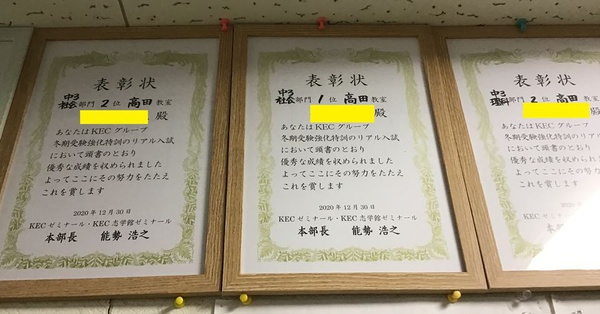 表彰状
中3
社会部門 2位 高田教室
殿
あなたはKECグループ
冬期受験強化特訓のリアル入試
において頭書のとおり
優秀な成績を収められました
よってここにその努力をたたえ
これを賞します
2020年12月30日
KECゼミナール・KEC志学館ゼミナール
本部長 能勢 浩之
表彰状
中3
社会部門 1位 高田教室
殿
あなたはKECグループ
冬期受験強化特訓のリアル入試
において頭書のとおり
優秀な成績を収められました
よってここにその努力をたたえ
これを賞します
2020年12月30日
KECゼミナール・KEC志学館ゼミナール
本部長 能勢 浩之
表彰状
中3
理科部門 2位 高田教室
殿
あなたはKECグループ
冬期受験強化特訓のリアル入試
において頭書のとおり
優秀な成績を収められました
よってここにその努力をたたえ
これを賞します
2020年12月30日
KECゼミナール・KEC志学館ゼミナール
本部長 能勢 浩之